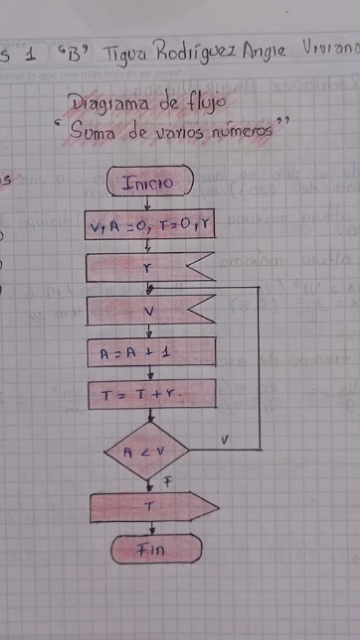 s 1 "B" Tigua Rodríguez Angie Viviana
Diagrama de flujo
"Suma de varios números"
Inicio
v, A = 0, T = 0, r
r
v
A = A + 1
T = T + r.
A < v
v
F
T
Fin